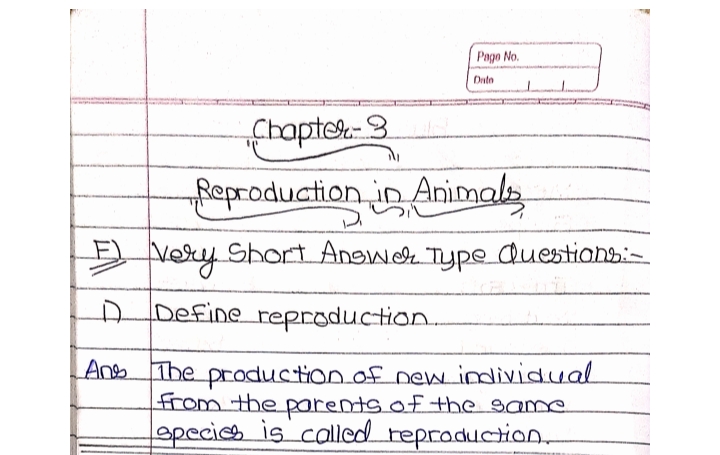 Page No.
Date
Chapter-3
Reproduction in Animals
F) Very Short Answer Type Questions:-
1) Define reproduction.
Ans The production of new individual
from the parents of the same
species is called reproduction.